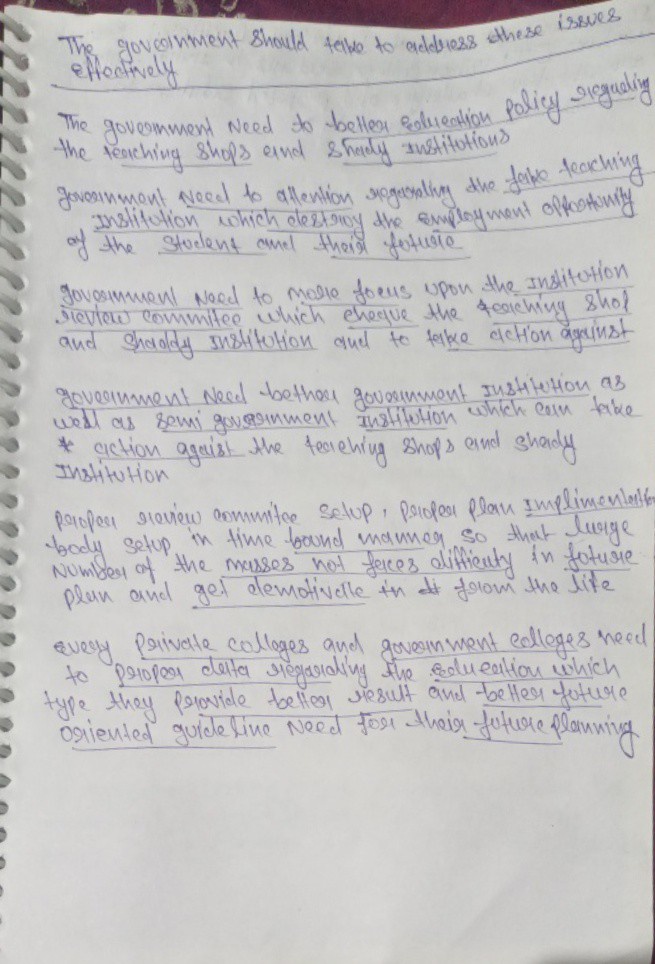 The government should take to address these issues
effectively
The government Need to better Education policy regarding
the teaching shops and Shady Institutions
government Need to attention regarding the fake teaching
Institution which destroy the employment opportunity
of the student and their future
government Need to more focus upon the Institution
review commitee which cheque the teaching Shop
and Shaddy Institution and to take action against
government Need bether government Institution as
well as semi government Institution which can take
* action agaist the teaching shops and shady
Institution
proper review commitee setup, proper plan Implimentation
body setup in time bound manner so that large
Number of the masses not faces difficuty in future
plan and get demotivate in from the life
Every private colleges and government colleges need
to proper data regarding the Education which
type they provide better result and better future
oriented guideline Need for their future planning